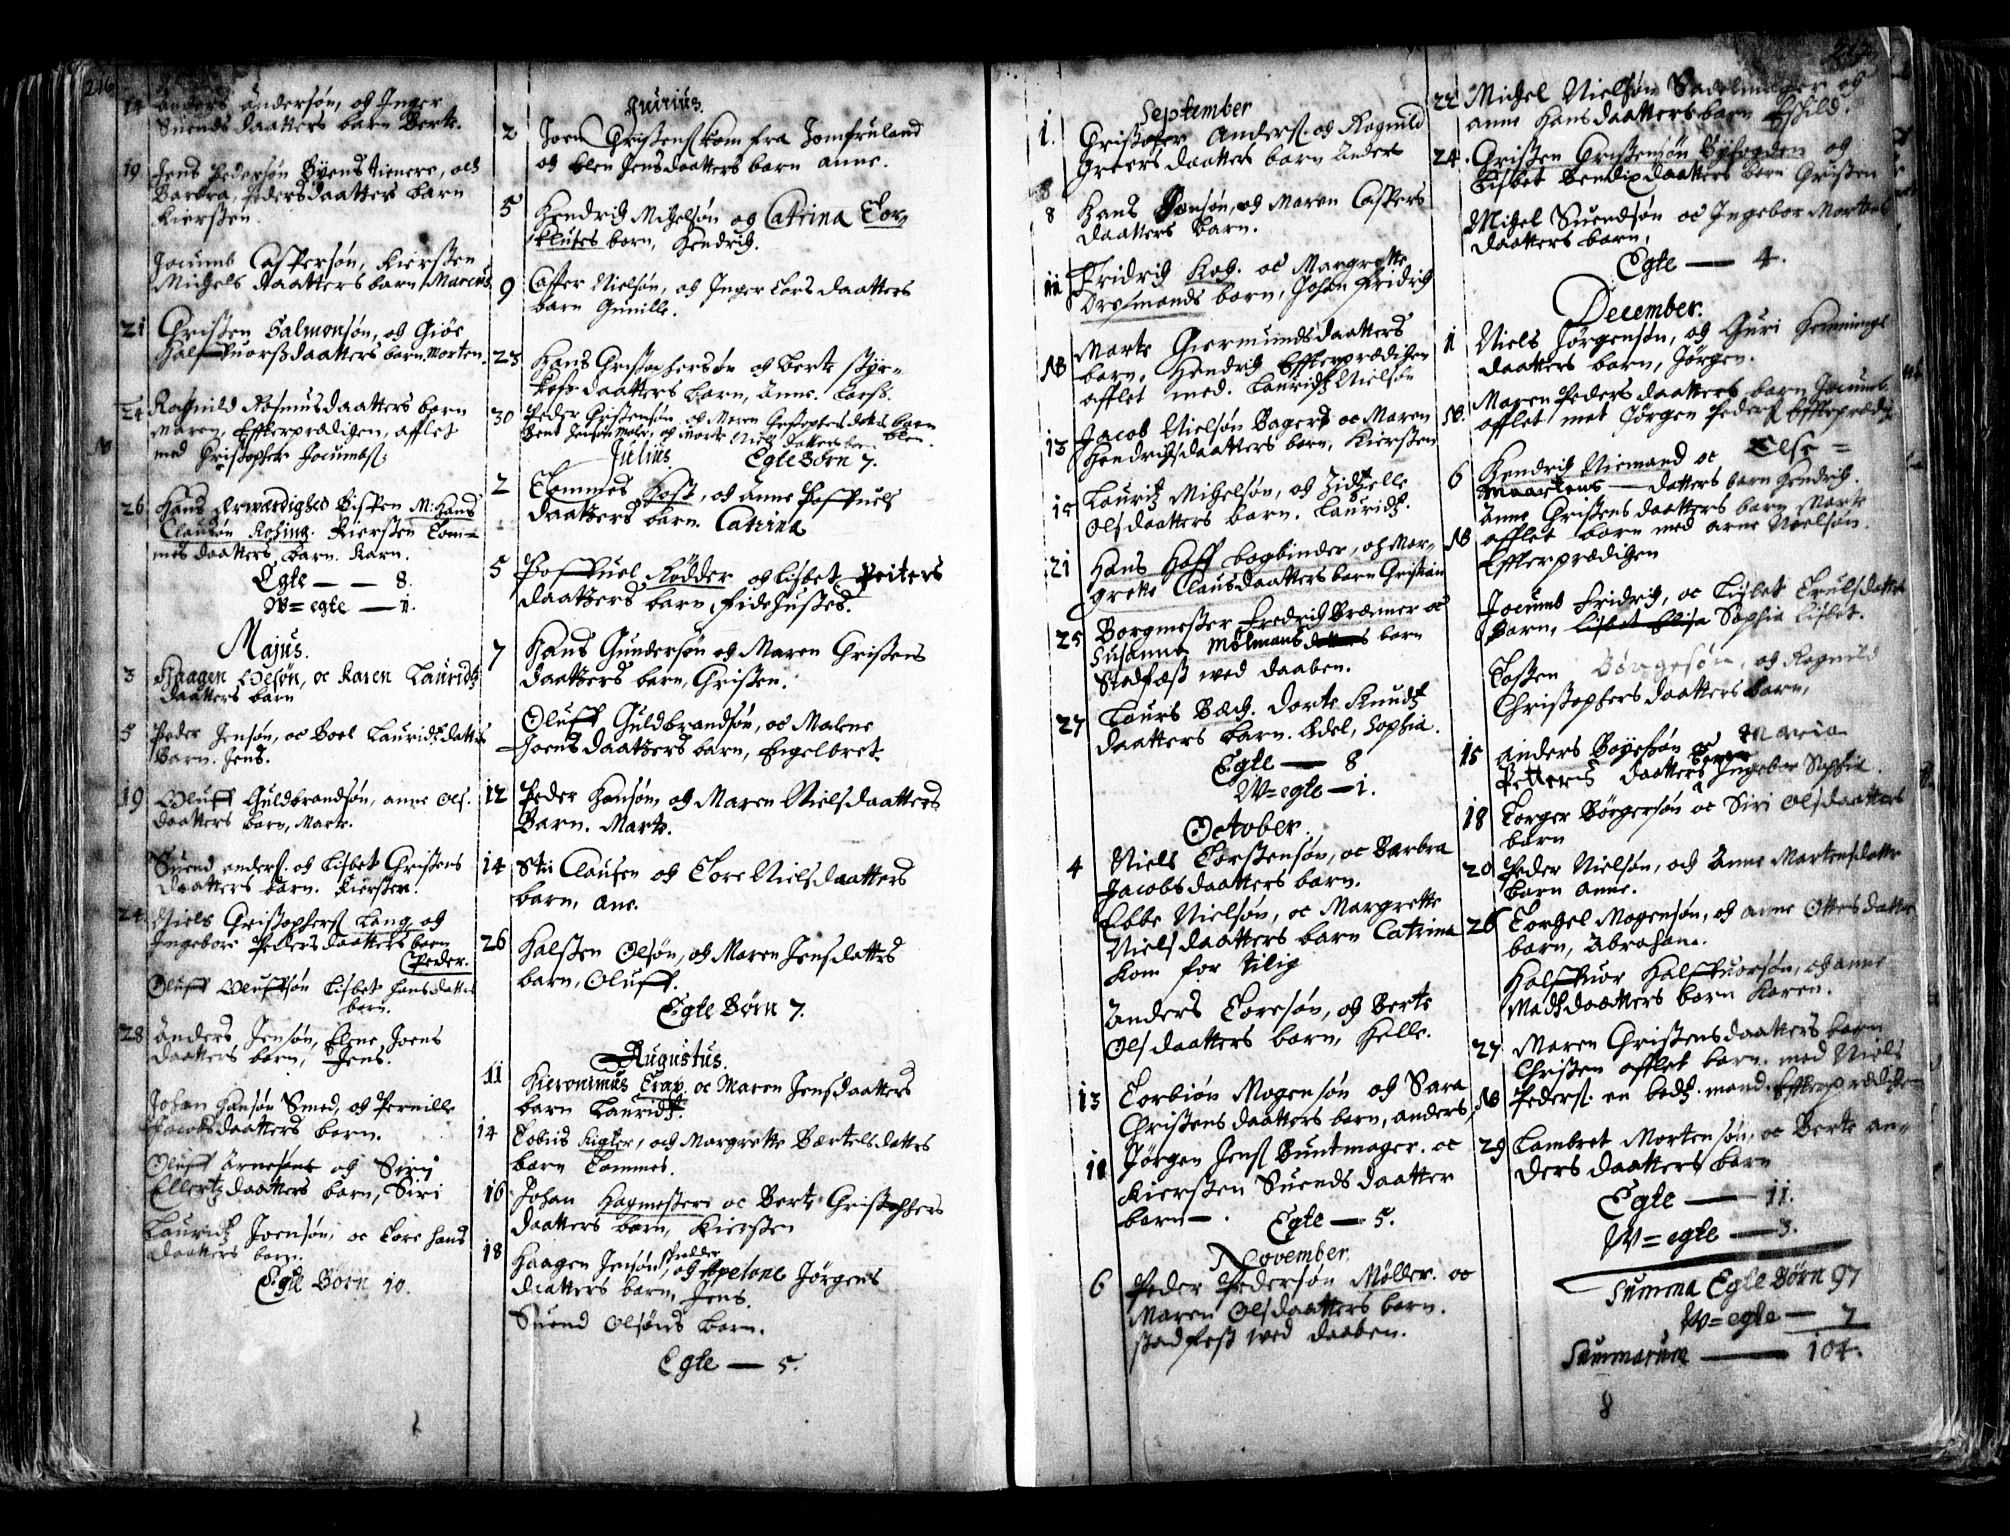 216
14 Anders Andersøn, og Inger
Suends daatters barn Berte.
19 Jens Pedersøn Byens tienere, och
Barbra, Peders daatters barn
Kiersten.
Jocumb Caspersøn, Kiersten
Michels daatters barn Marcus
21 Christen Salmonsøn, og Giøe
Halfuors daatters barn Morten.
24 Ragnild Rasmus daatters barn
NB Maren, Efterpradigen, afflet
med Christopher Jocumbs:
26 Hans Ærwærdighed Bispen M: Hans
Clausøn Rosing. Kiersten Tom=
mis daatters barn. Karn.
Egte — — 8.
W=egte — 1.
Majus.
3 Haagen Olesøn, oc Karen Lauridtz
daatters barn
5 Peder Jensøn, oc Boel Lauridtz datters
Barn. Jens.
19 Oluff Guldbrandsøn, anne Ols.
daatters barn, Marte.
Suend anders. og Lisbet Christens
daatters barn. Kiersten.
24 Niels Christophers Lang, og
Ingebore Peders daatters barn
Peder.
Oluff Oluffsøn Lisbet Hans datters
barn.
28 Anders Jensøn, Elene Joens
daatters barn, Jens.
Johan Hansøn Smed, og Pernille
Jacobs daatters barn.
Oluff Arnesøns og Sirj
Ellertz daatters barn, Siri
Lauridtz Joensøn, oc Tore Hans
daatters barn.
Egte Børn 10.
Junius.
2 Joen Christens kom fra Jomfruland
og Elen Jens daatters barn Anne.
5 Hendrich Michelsøn og Catrina Tor=
klutes barn, Hendrich.
9 Casper Nielsøn, og Inger Lars daatters
barn Gunille.
23 Hans Christophersøn og Berte Styr=
kors daatters barn, Anne. Lars.
30 Peder Christensøn, og Maren Christophers daters barn
Elen.
Julius. Egte Børn 7.
2 Tommes Host, og Anne Pofvuels
daatters barn. Catrina
5 Pofvuel Rödder og Lisbet Peiters
daatters barn, Fide Justes.
7 Hans Gundersøn og Maren Christens
daatters barn, Christen.
Oluff Guldbrandsøn, oc Malene
Joens daatters barn, Engelbret.
12 Peder Hansøn og Maren Niels daatters
Barn. Marte.
14 Sti Clausen og Tore Niels daatters
barn, Ane.
26 Halsten Olsøn, og Maren Jens datters
barn, Oluff.
Egte Børn 7.
Augustus.
11 Hieronimus Trap, oc Maren Jens daatters
barn Lauridtz.
14 Tobias Rigler, och Margrette Bærtels datters
barn Tommes.
16 Johan Hagmestere oc Berte Christophers
daatters barn, Kiersten
18 Haagen Jensøn, og Apelone Jørgens
daatters barn, Jens.
Suend Olsøns barn.
Egte — 5.
September
1. Christopher Anders. og Ragnild
Greers daatters barn Anders
8 Hans Hansøn, og Maren Caspers
daatters barn.
11 Fridrich Koch. oc Margrette
Orlmands barn, Johan Fridrich
Marte Giermunds daatters
NB barn, Hendrich Efterpradigen
afflet med. Lauridtz Nielsøn
13 Jacob Nielsøn Bager oc Maren
Hendrichs daatters barn, Kiersten
15 Lauridtz Michelsøn, og Zidtzelle
Ols daatters barn. Lauridtz.
21 Hans Hoff bogbinder, og Mar=
grete Claus daatters barn Christian
25 Borgmester Fredrich Bremer oc
Susanna Mølmans barn
Stadfæst wed daaben.
27 Laurs Bæch. Dorte Knudtz
daatters barn. Edel, Sophia.
Egte — 8
W=egte — 1.
October.
4 Niels Torstensøn, oc Barbra
Jacobs daatters barn.
Ebbe Nielsøn, oc Margrette
Niels daatters barn Catrina
kom for tilig
Anders Toresøn, og Berte
Ols daatters barn, Helle.
13 Torbiøn Mogensøn og Sara
Christens daatters barn, anders,
18 Jørgen Jens Buntmager. oc
Kiersten Suends daatter
barn —. Egte — 5.
November.
6 Peder Pedersøn Møller. oc
Maren Ols daatters barn.
stadfest wed daaben.
22 Michel Nielsøn Sadelmager og
anne Hans daatters barn Eskild.
24. Christen Christensøn Byfogden og
Lisbet Bendix daatters barn Christen
Michel Suendsøn oc Ingebor Mortens
daatters barn,
Egte — 4.
December.
1 Niels Jørgensøn, og Guri Hennings
daatters barn, Jørgen.
NB. Maren Peders daatters barn Jocumb
afflet met Jørgen Peders Efterpradig
6 Hendrich Niemand oc Else =
Maartens — datters barn Hendrich.
Anne Christens daatters barn Marte
NB afflet barn med Arne Noelsøn.
Efterpradigen
Jocumb Fridrich, oc Lisbet Truls datters
Barn, Sophia Lisbet.
Tosten Børgesøn, og Ragnild
Christophers daatters barn,
15 Anders Boyesøn oc Maria
Petters daatters barn Ingebor Sophia.
18 Torger Børgersøn oc Siri Ols daatters
barn
20 Peder Nielsøn, och Anne Martens datter
barn Anne.
26 Torgel Mogensøn, og Anne Ottes datter
barn, Abraham.
Halfvuor Halfvuorsøn, og anne
Mads daatters barn Karen.
27 Maren Christens daatters barn
Christen afflet barn. med Niels
NB Peders. en baads. mand Efterpradigen
29 Lambret Mortensøn, oc Berte An=
ders daatters barn
Egte — 11.
W=egte — 3.
Summa Egte Børn 97
W=egte — 7
Summarum — 104.
8